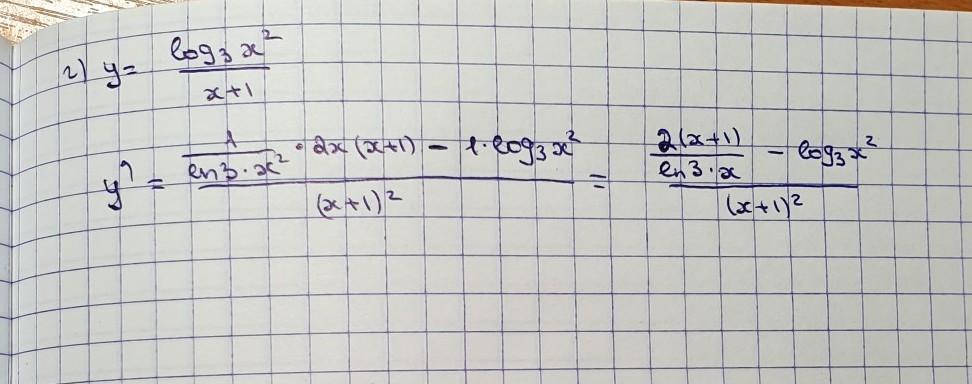 г) y = log₃ x² / (x+1)
y' = (1/(ln3·x²) · 2x(x+1) − 1·log₃ x²) / (x+1)² = (2(x+1)/(ln3·x) − log₃ x²) / (x+1)²